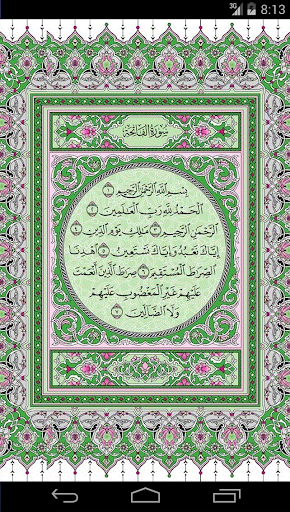 3G 8:13
سورة الفاتحة
بِسْمِ ٱللَّهِ ٱلرَّحْمَٰنِ ٱلرَّحِيمِ ١
ٱلْحَمْدُ لِلَّهِ رَبِّ ٱلْعَٰلَمِينَ ٢
ٱلرَّحْمَٰنِ ٱلرَّحِيمِ ٣ مَٰلِكِ يَوْمِ ٱلدِّينِ ٤
إِيَّاكَ نَعْبُدُ وَإِيَّاكَ نَسْتَعِينُ ٥ ٱهْدِنَا
ٱلصِّرَٰطَ ٱلْمُسْتَقِيمَ ٦ صِرَٰطَ ٱلَّذِينَ أَنْعَمْتَ
عَلَيْهِمْ غَيْرِ ٱلْمَغْضُوبِ عَلَيْهِمْ
وَلَا ٱلضَّآلِّينَ ٧